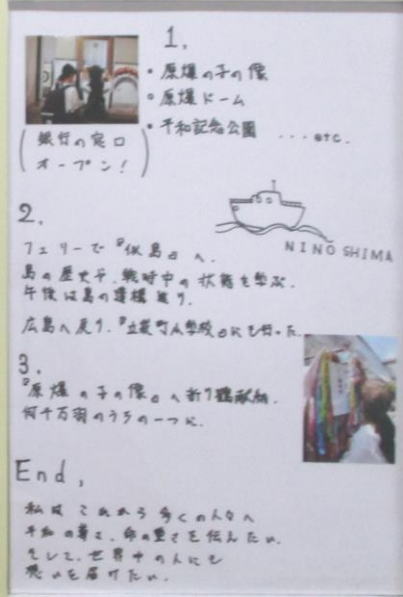 1.
・原爆の子の像
・原爆ドーム
・平和記念公園 ...etc.
(銀行の窓口
オープン!)
2.
NINOSHIMA
フェリーで『似島』へ.
島の歴史や、戦時中の状態を学ぶ.
午後は島の遺構巡り.
広島へ戻り、『立町小学校』にも行った.
3.
『原爆の子の像』へ折り鶴献納.
何千万羽のうちの一つに.
End,
私は これから 多くの人々へ
平和の尊さ、命の重さを伝えたい.
そして、世界中の人にも
思いを届けたい.